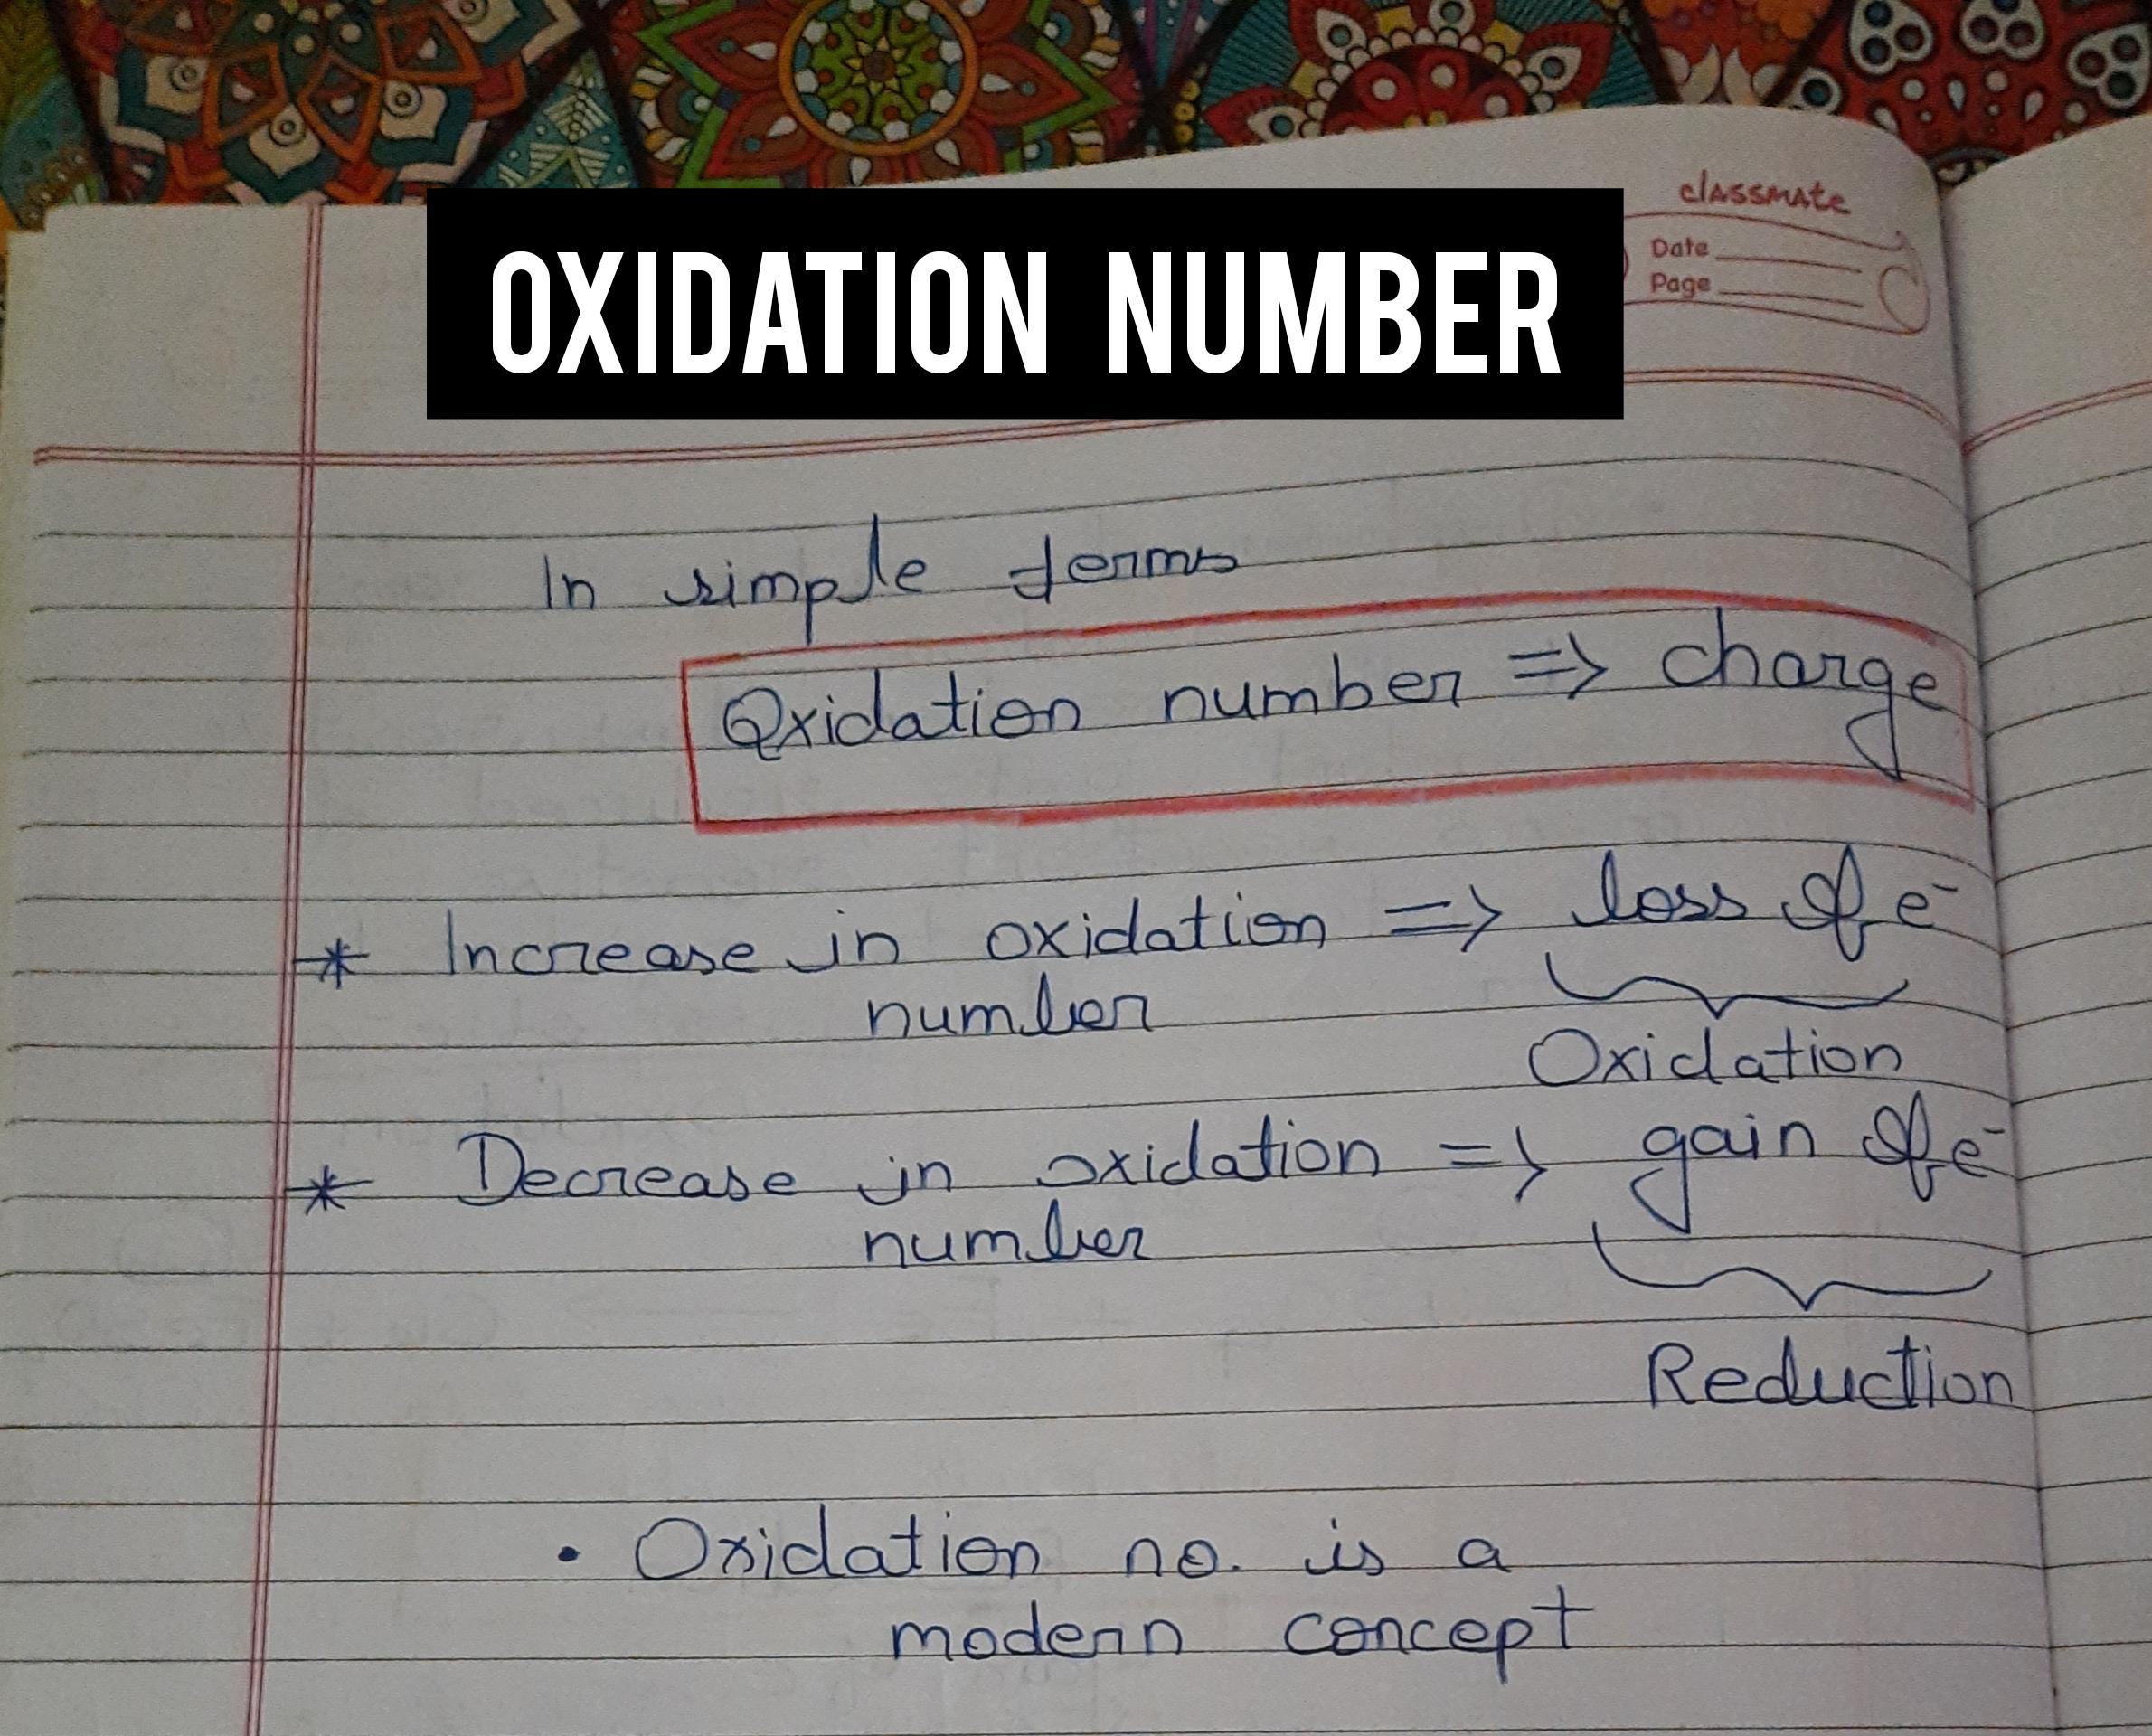 OXIDATION NUMBER
classmate
Date
Page
In simple terms
Oxidation number => charge
* Increase in oxidation => loss of e⁻
number
Oxidation
* Decrease in oxidation => gain of e⁻
number
Reduction
• Oxidation no. is a
modern concept